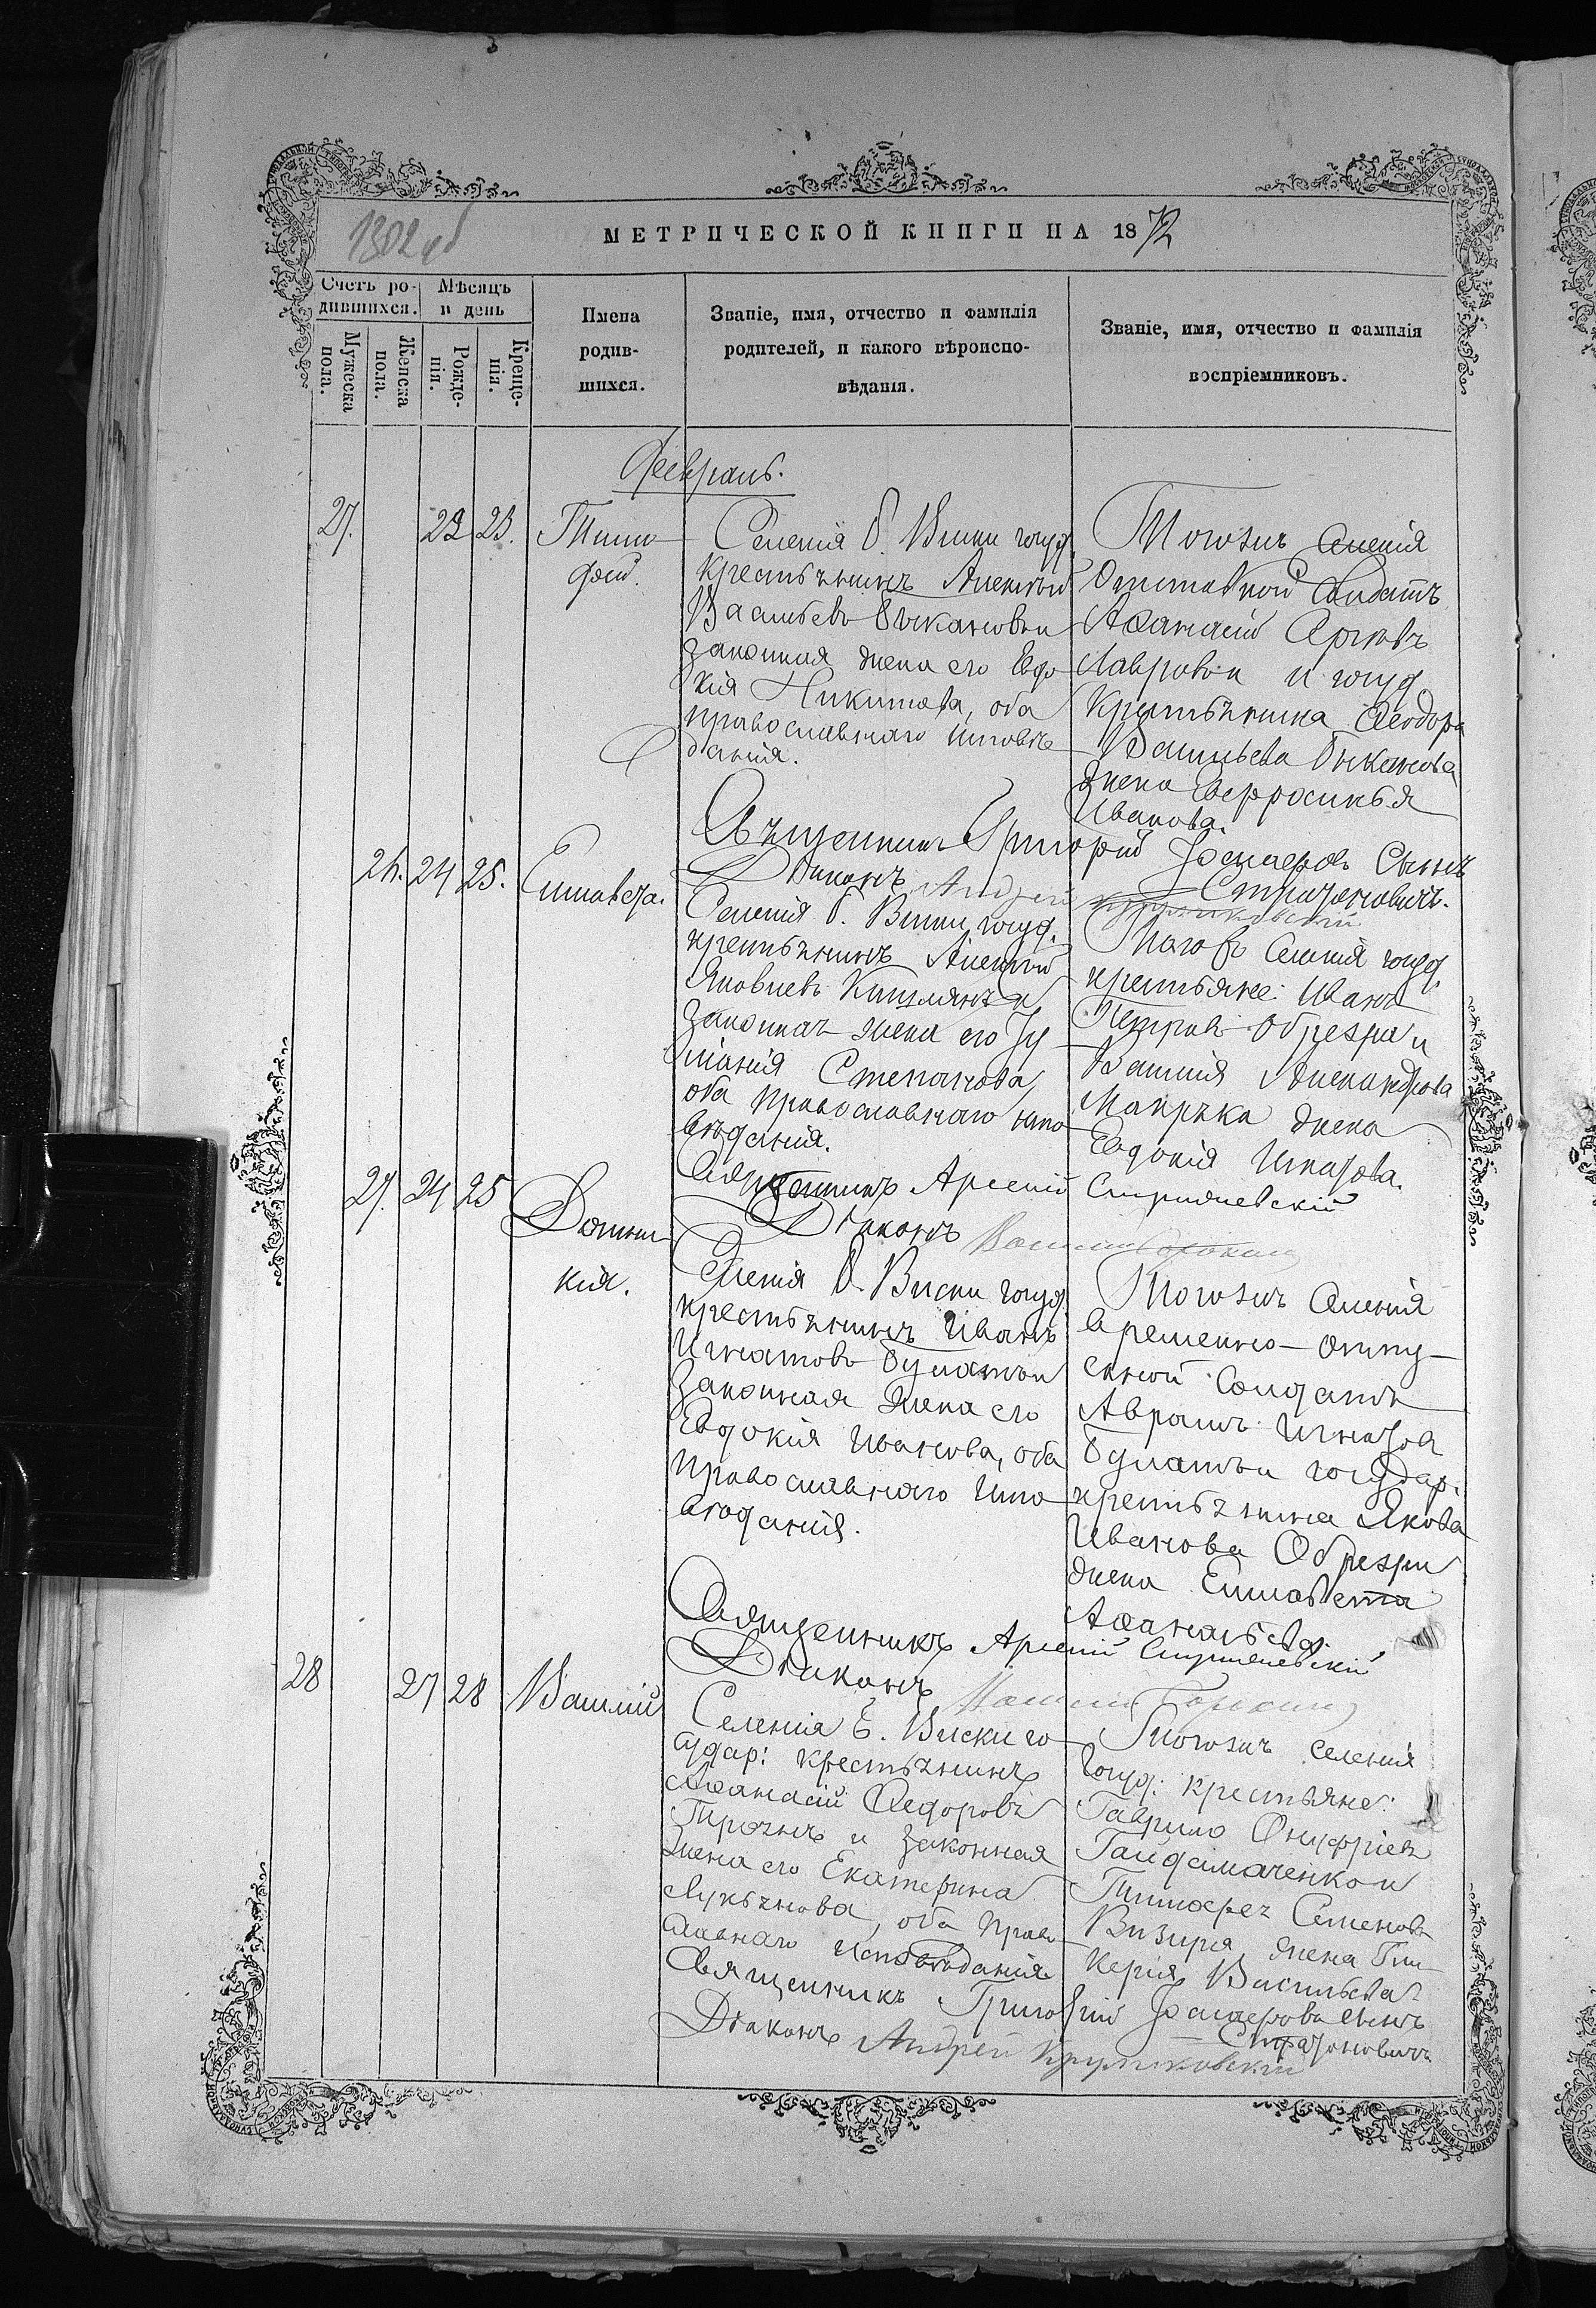 1302 об
МЕТРИЧЕСКОЙ КНИГИ НА 1872
Счетъ ро-
дившихся.
Мѣсяцъ
и день
Мужеска
пола.
Женска
пола.
Рожде-
нія.
Креще-
нія.
Имена
родив-
шихся.
Званіе, имя, отчество и фамилія
родителей, и какого вѣроиспо-
вѣданія.
Званіе, имя, отчество и фамилія
воспріемниковъ.
Февраль.
27. 22 23. Тимо
фей.
Селенія Б. Виски госуд.
крестьянинъ Алексѣй
Васильевъ Быкановъ и
законная жена его Евдо
кія Никитова, оба
православнаго исповѣ
данія.
Тогожъ селенія
Отставной Солдатъ
Аѳанасій
Лавровъ и госуд.
крестьянина Ѳеодора
Васильева Быканова
жена Евфросинья
Иванова.
Священникъ Григорій Сынъ
Діаконъ Андрей Крупиковскій
24. 25. Елисавета.
Селенія Б. Виски, госуд.
крестьянинъ Алексѣй
Яковлевъ и
законная жена его Іу
ліанія Степанова,
оба православнаго испо
вѣданія.
Тогожъ Селенія госуд.
крестьяне: Иванъ
Петровъ Обрезри и
Василія Александрова
жена
Евдокія Игнатова.
Священникъ Арсеній
Діаконъ
27. 24 25 Домни
кія.
Селенія Б. Виски госуд.
крестьянинъ Иванъ
Игнатовъ Булатъ и
законная жена его
Евдокія Иванова, оба
православнаго испо
вѣданія.
Тогожъ Селенія
временно-отпу-
скной Солдатъ
Аврамъ Игнатов
Булатъ и государ.
крестьянина Якова
Иванова Обрезри
жена Елисавета
Аѳанасьева.
Священникъ Арсеній
Діаконъ
28 27 28 Василій
Селенія Б. Виски го
судар: крестьянинъ
Аѳанасій Ѳедоровъ
и законная
жена его Екатерина
Лукьянова, оба право
славнаго исповѣданія
Тогожъ селенія
госуд: крестьяне:
Гаврило Онуфріевъ
Гайдамаченко и
Тимофея Семенова
Визира жена Гли
керія Васильева
Священникъ Григорій сынъ
Діаконъ Андрей Крупиковскій